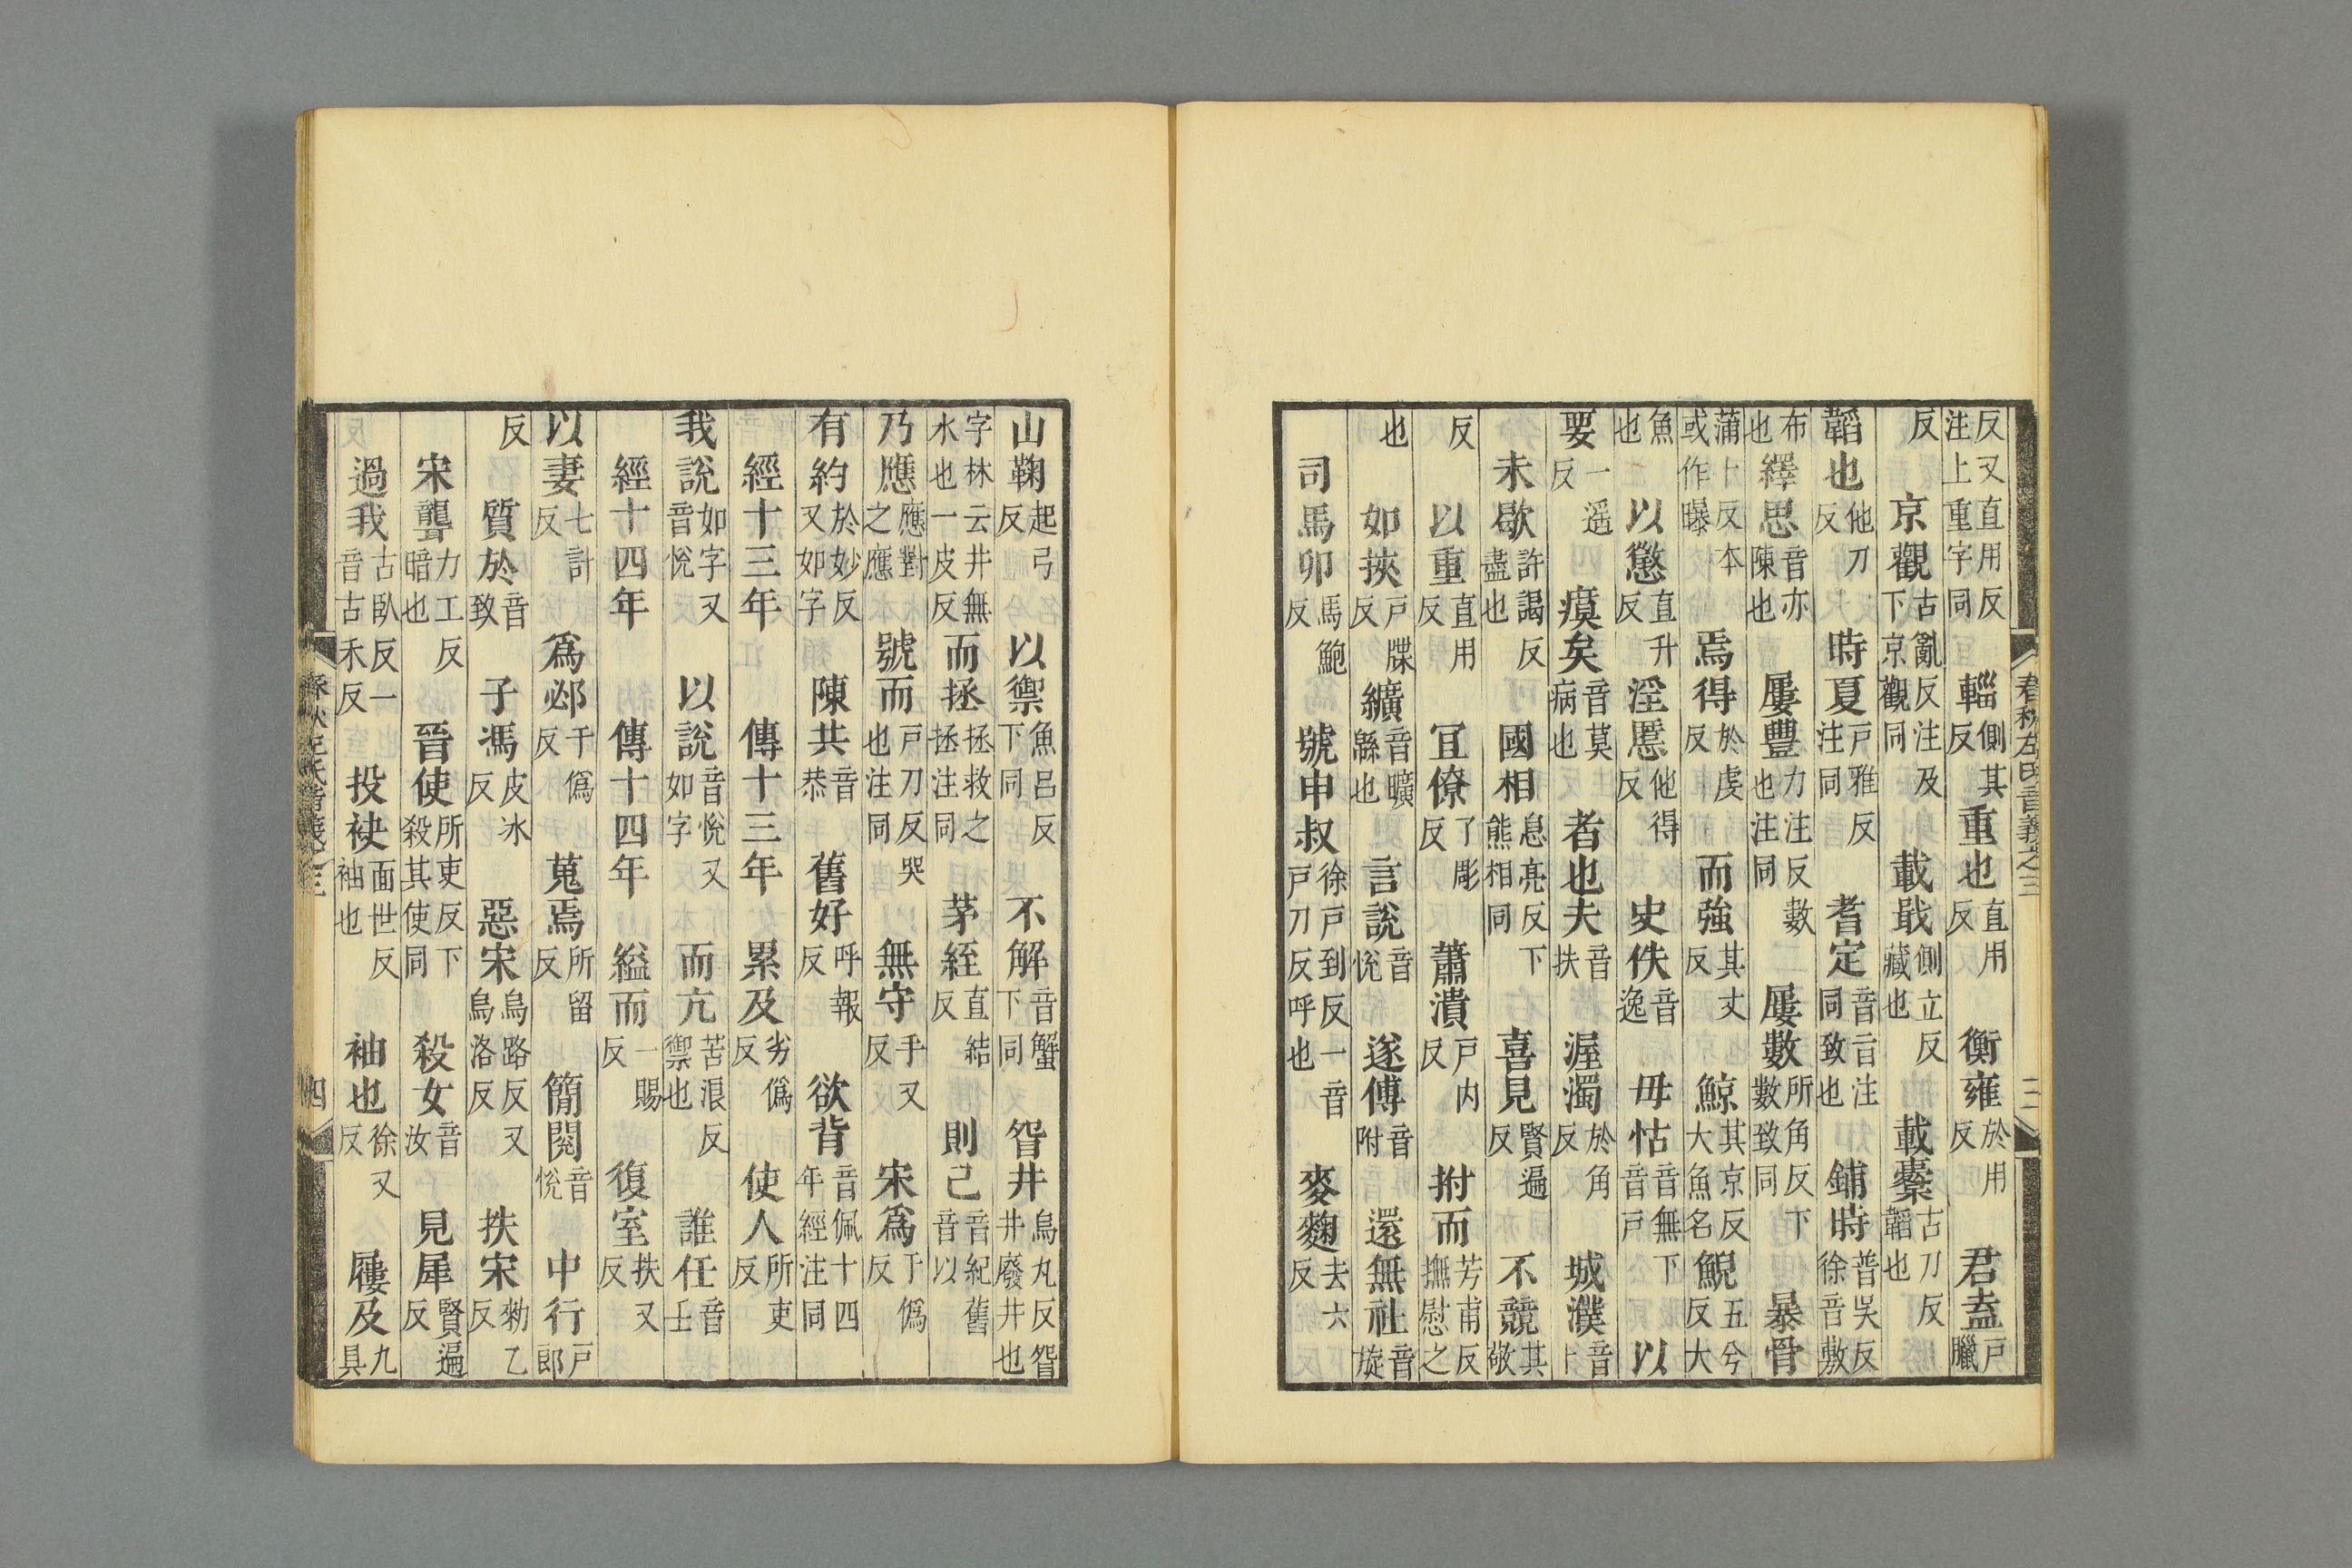 反又直用反注上重字同 輜側其反 重也直用反 衡雍於用反 君盍戶臘
反 京觀古亂反注及下京觀同 載戢側立反藏也 載櫜古刀反韜也
韜也他刀反 時夏戶雅反注同 耆定音旨注同致也 鋪時普吳反徐音敷
布也 繹思音亦陳也 屢豐力注反數也注同 屢數所角反下數致同 暴骨
蒲卜反本或作曝 焉得於虔反 而強其丈反 鯨其京反大魚名 鯢五兮反大
魚也 以懲直升反 淫慝他得反 史佚音逸 毋怙音無下音戶 以
要一遥反 瘼矣音莫病也 者也夫音扶 渥濁於角反 城濮音卜
未歇許謁反盡也 國相息亮反下熊相同 喜見賢遍反 不競其敬
反 以重直用反 冝僚了彫反 蕭潰戶内反 拊而芳甫反撫慰之
也 如挾戶牒反 纊音曠緜也 言說音悅 遂傅音附 還無社音旋
司馬卯馬鮑反 號申叔徐戶到反一音戶刀反呼也 麥麴去六反
春秋左氏音義之三
山鞠起弓反 以禦魚呂反下同 不解音蟹下同 眢井烏丸反眢井廢井也
字林云井無水也一皮反 而拯拯救之拯注同 茅絰直結反 則己音紀舊音以
乃應應對之應 號而戶刀反哭也注同 無守手又反 宋爲于僞反
有約於妙反又如字 陳共音恭 舊好呼報反 欲背音佩十四年經注同
經十三年 傳十三年 累及劣僞反 使人所吏反
我說如字又音悅 以說音悅又如字 而亢苦浪反禦也 誰任音壬
經十四年 傳十四年 縊而一賜反 復室扶又反
以妻七計反 爲邲于僞反 蒐焉所留反 簡閱音悅 中行戶郎
反 質於音致 子馮皮冰反 惡宋烏路反又烏洛反 抶宋勑乙反
宋聾力工反暗也 晉使所吏反下殺其使同 殺女音汝 見犀賢遍反
過我古臥反一音古禾反 投袂面世反袖也 袖也徐又反 屨及九具
春秋左氏音義之三 四